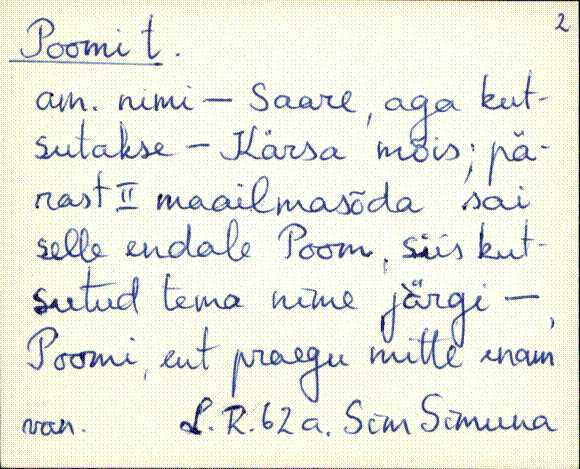 2
Poomi t.
am. nimi – Saare, aga kut-
sutakse – Kärsa mõis; pä-
rast II maailmasõda sai
selle endale Poom, siis kut-
sutud tema nime järgi –,
Poomi, ent praegu mitte enam
van. L.R. 62 a. Sim Simuna